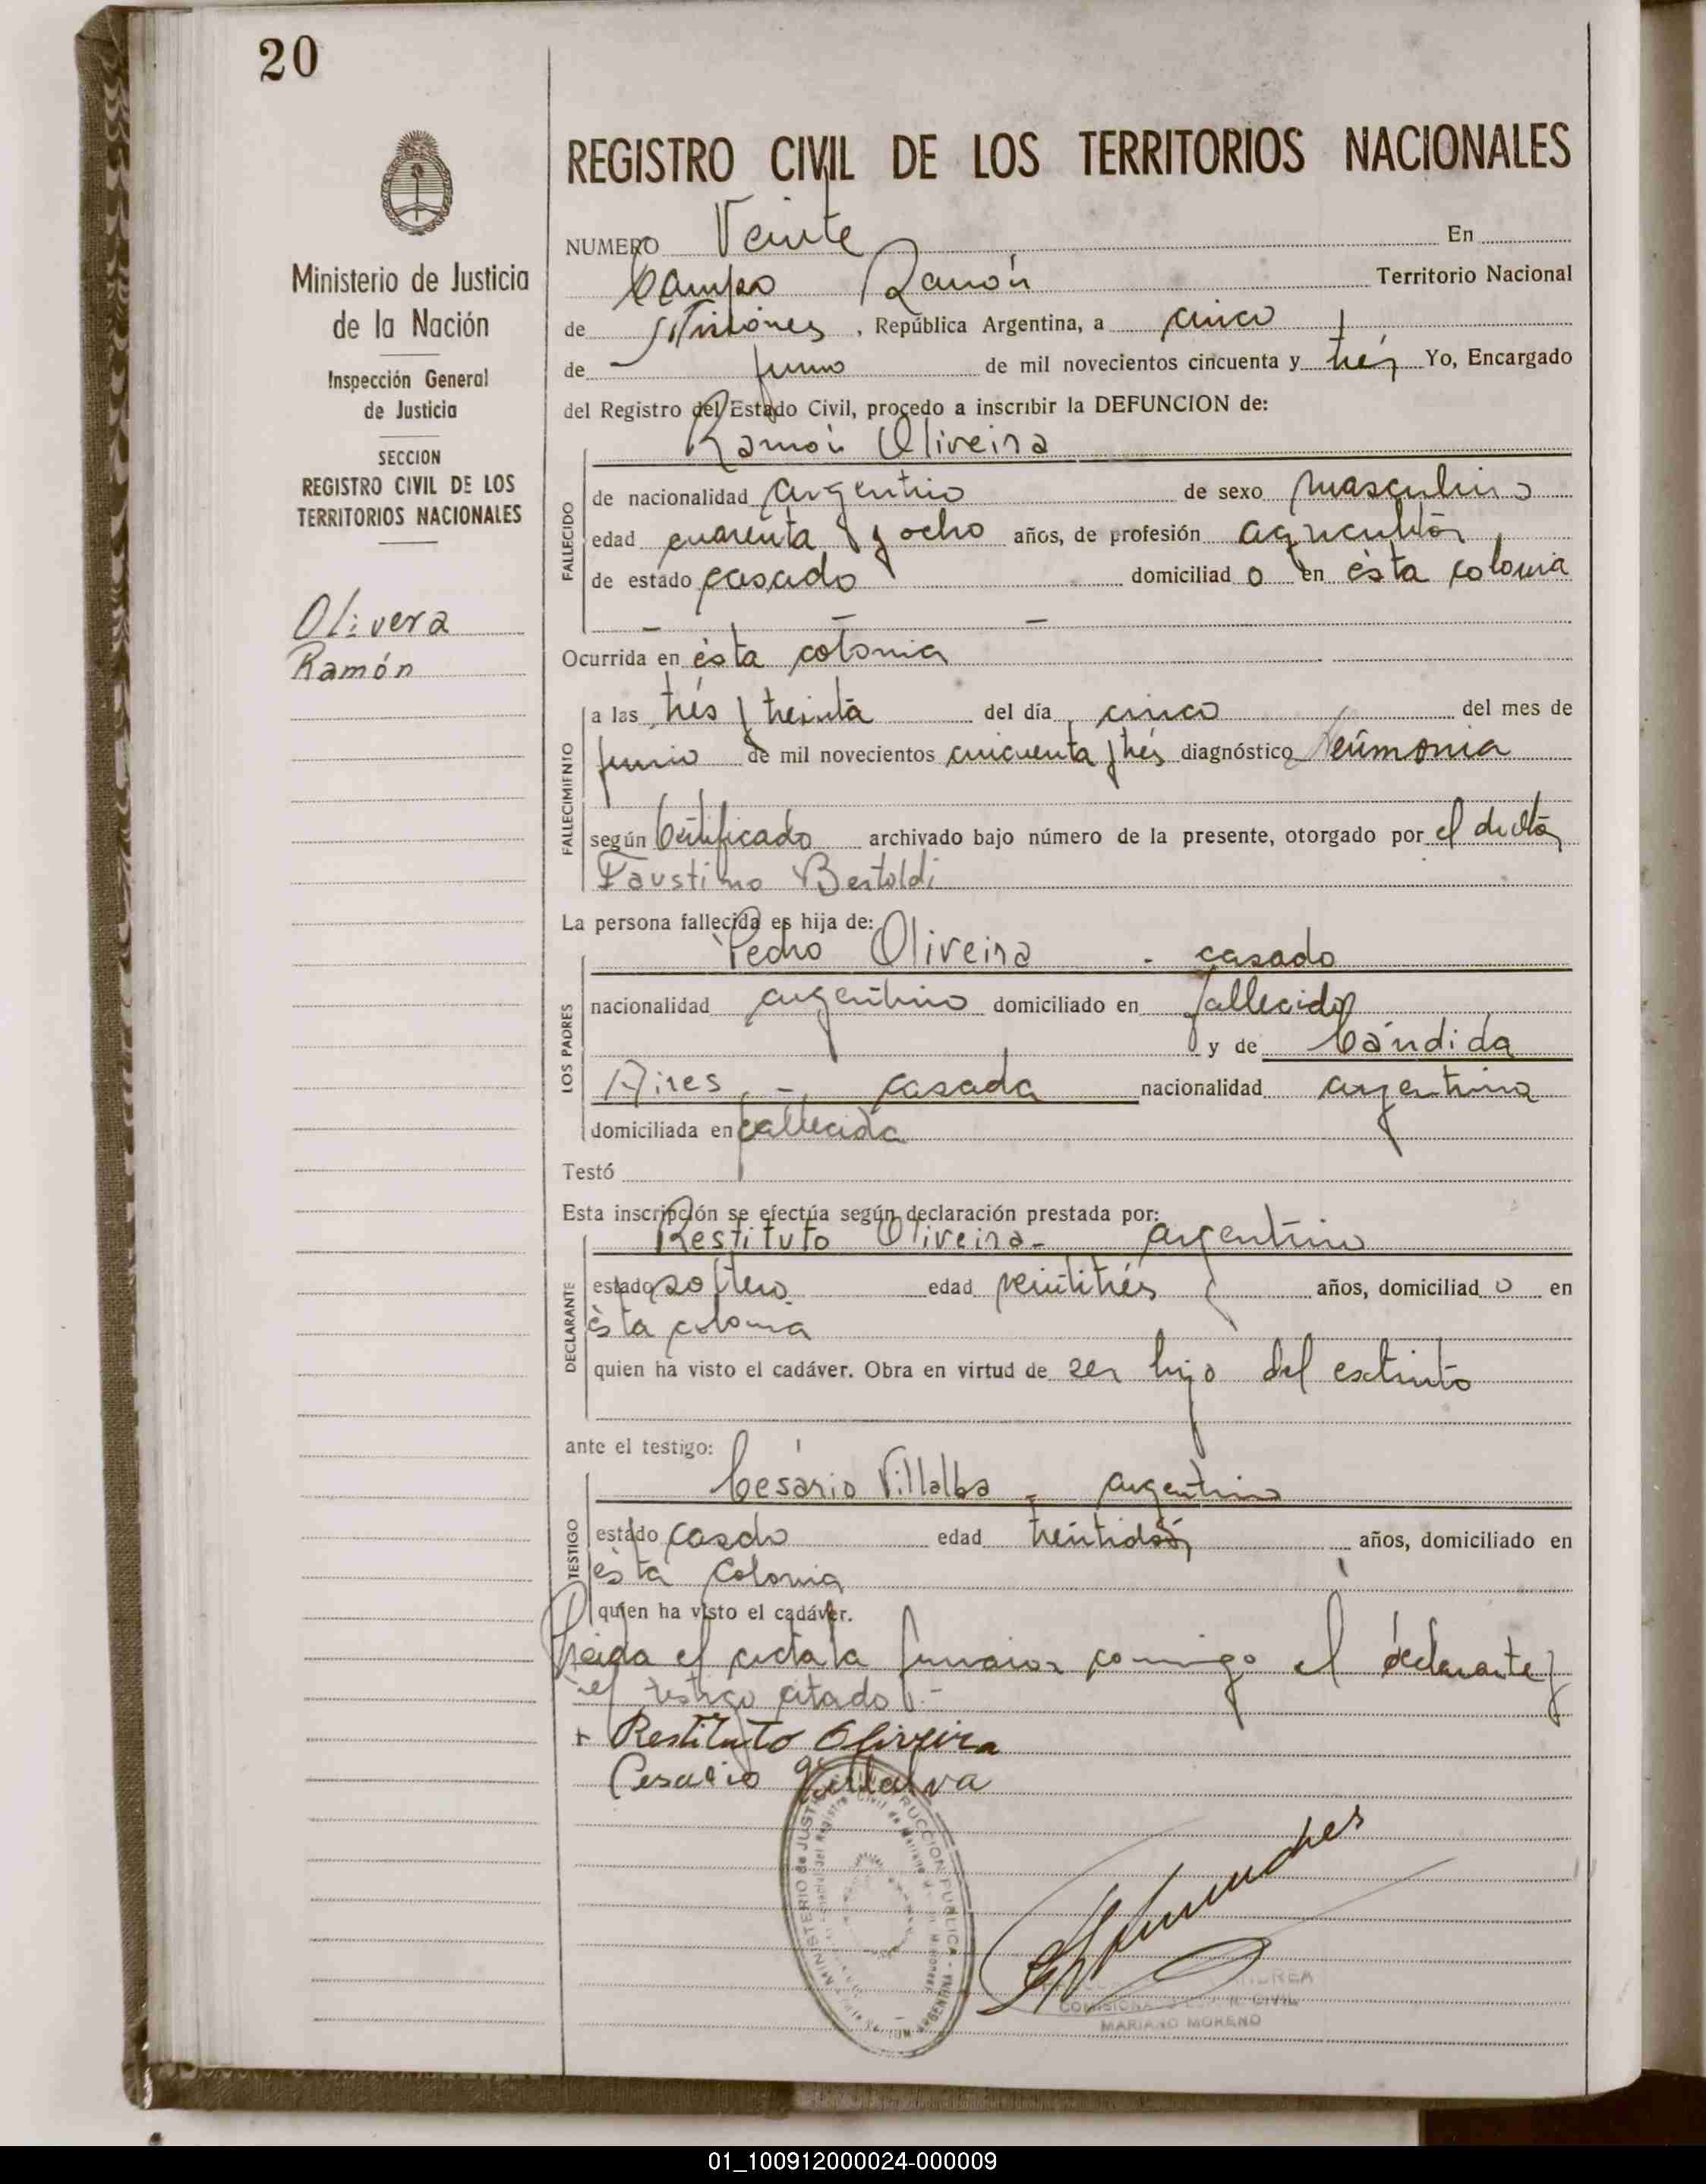 20
Ministerio de Justicia
de la Nación
Inspección General
de Justicia
SECCION
REGISTRO CIVIL DE LOS
TERRITORIOS NACIONALES
Olivera
Ramón
REGISTRO CIVIL DE LOS TERRITORIOS NACIONALES
NUMERO Veinte En
Campo Ramón Territorio Nacional
de Misiones, República Argentina, a cinco
de junio de mil novecientos cincuenta y trés Yo, Encargado
del Registro del Estado Civil, procedo a inscribir la DEFUNCION de:
Ramón Oliveira
FALLECIDO
de nacionalidad argentino de sexo masculino
edad cuarenta y ocho años, de profesión agricultor
de estado casado domiciliad o en ésta colonia
Ocurrida en ésta colonia
FALLECIMIENTO
a las trés y treinta del día cinco del mes de
junio de mil novecientos cincuenta y trés diagnóstico Neumonia
según Certificado archivado bajo número de la presente, otorgado por el doctor
Faustino Bertoldi
La persona fallecida es hija de:
LOS PADRES
Pedro Oliveira - casado
nacionalidad argentino domiciliado en fallecido
y de Cándida
Aires - casada nacionalidad argentina
domiciliada en fallecida
Testó
Esta inscripción se efectúa según declaración prestada por:
DECLARANTE
Restituto Oliveira - argentino
estado soltero edad veintitrés años, domiciliad o en
ésta colonia
quien ha visto el cadáver. Obra en virtud de ser hijo del extinto
ante el testigo:
TESTIGO
Cesário Villalba - argentino
estado casdo edad treintidós años, domiciliado en
ésta colonia
quien ha visto el cadáver.
Leida el acta la firmaron conmigo el declarante y
el testigo citado.-
Restituto Oliveira
Cesario Villalva
MINISTERIO de JUSTICIA INSTRUCCION PUBLICA - ARGENTINA
COMISIONADO R. CIVIL
MARIANO MORENO
01_100912000024-000009